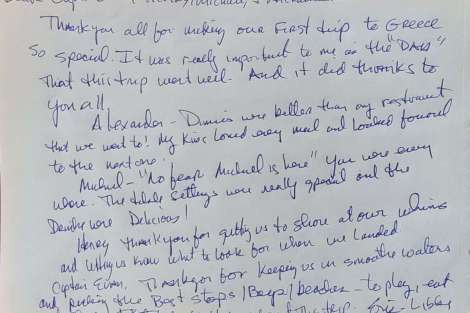 Thank you all for making our First trip to GREECE
So special. It was really important to me as the "DADS"
That this trip went well. And it did thanks to
you all,
Alexander - Dinners were better than any restraunt
that we went to! My Kids Loved every meal and Looked forward
to the next one.
Michael - "No fear Michael is here" You were every
where. The table settings were really special and the
were Delicious!
Henry thankyou for getting us to shore at our
and letting us know what to look for when we Landed
Captain Evan, Thankyou for Keeping us in smoothe waters
and the Best stops / Bays / beaches - to play, eat
the trip.